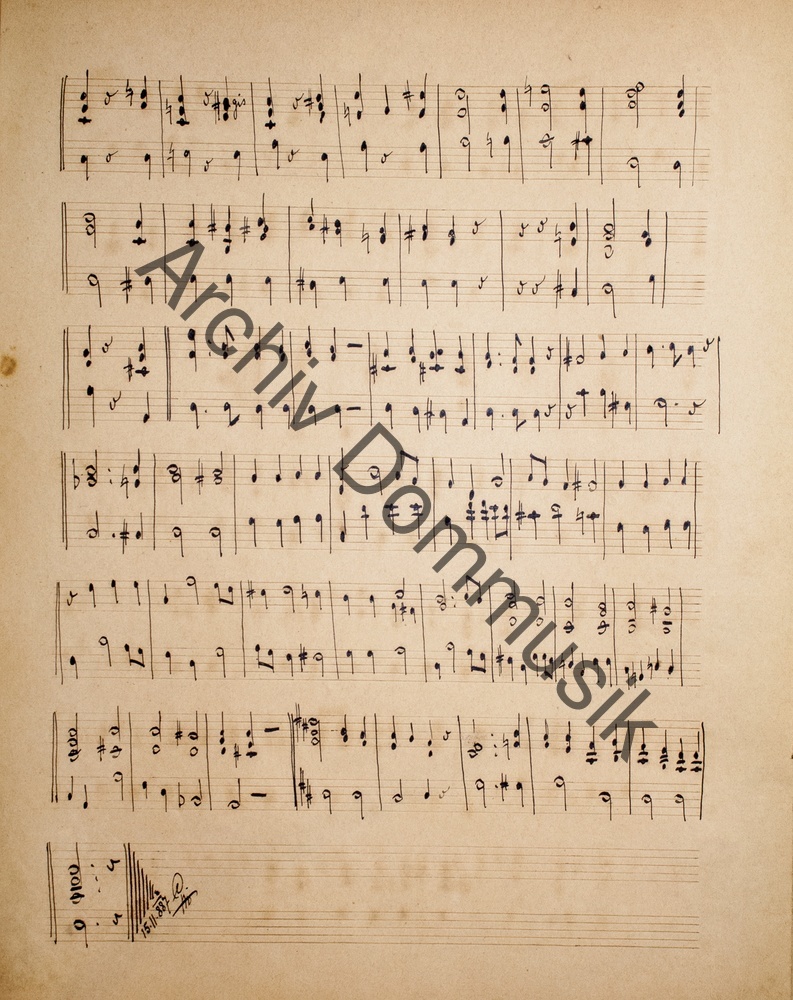 gis
Archiv Dommusik
15.11.887